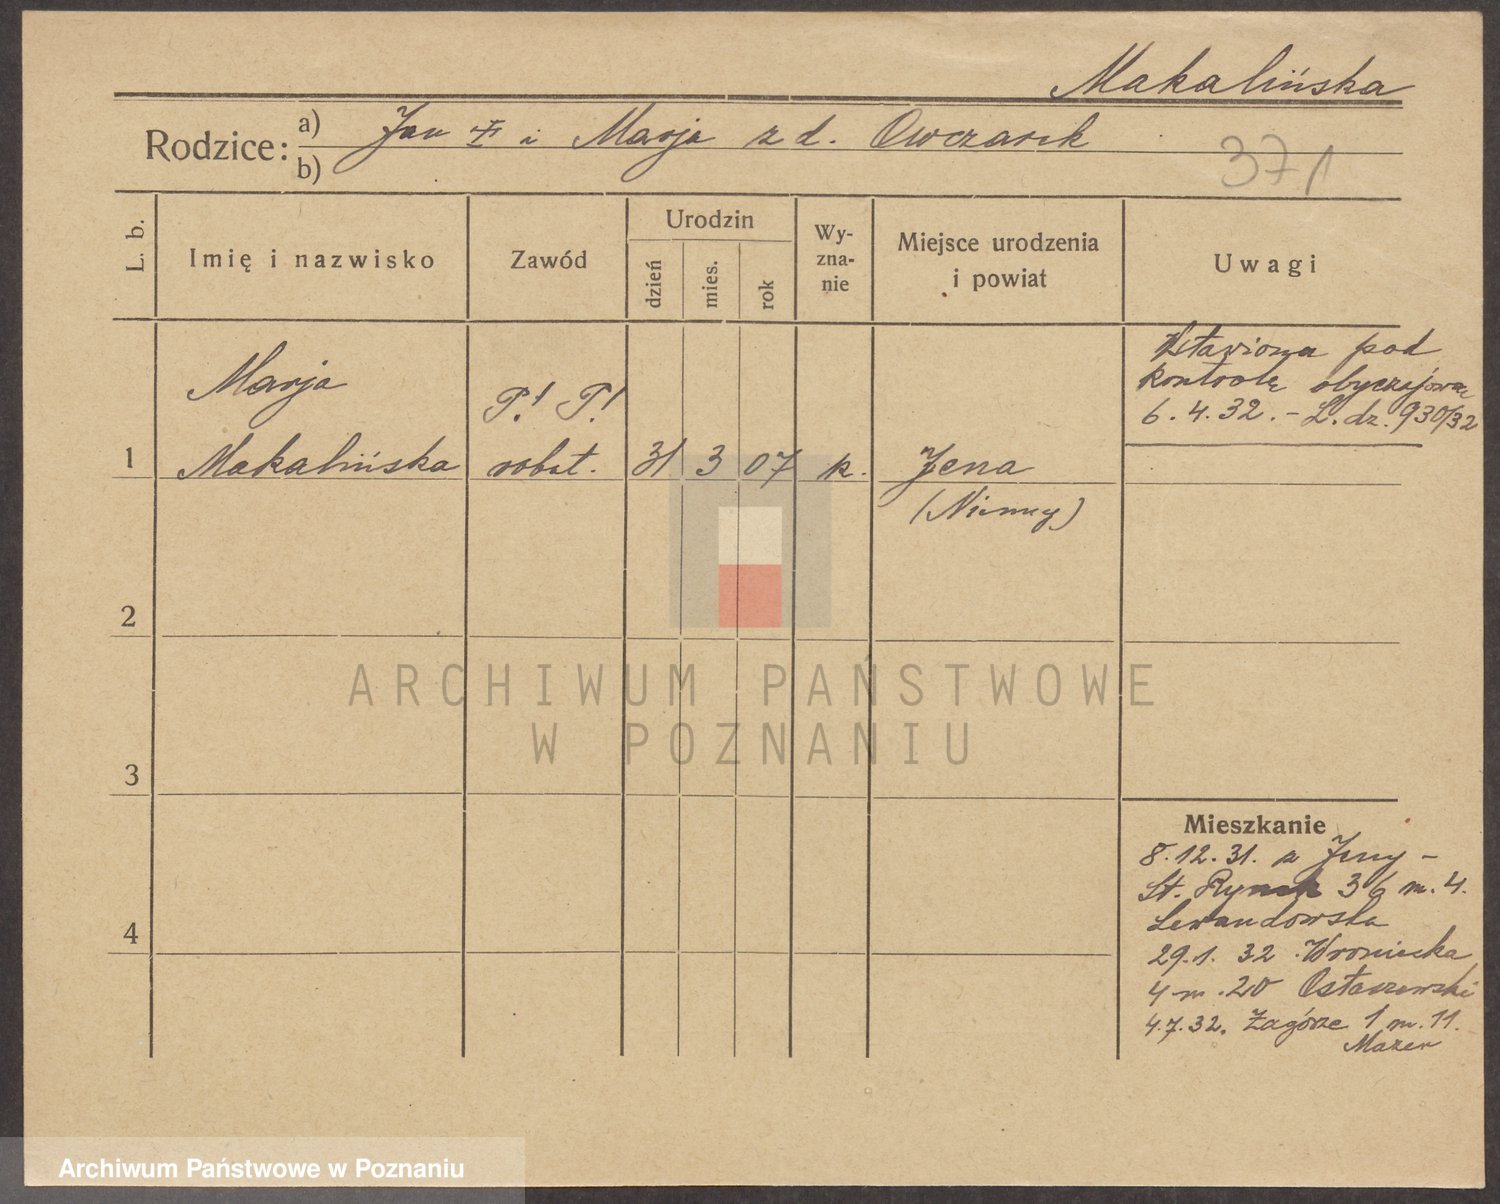 Makalińska
Rodzice: a) Jan i Marja z d. Owczarek
b)
371
L. b.
Imię i nazwisko
Zawód
Urodzin
dzień
mies.
rok
Wy-
zna-
nie
Miejsce urodzenia
i powiat
Uwagi
Marja
P! P!
1 Makalińska robot. 31 3 07 k. Jena
(Niemcy)
Wstawiona pod
kontrolę obyczajową
6.4.32. – L. dz. 930/32
2
3
4
Mieszkanie
8.12.31. z Jeny –
St. Rynek 36 m. 4.
Lewandowska
29.1.32 Wroniecka
4 m. 20 Ostaszewski
4.7.32. Zagórze 1 m. 11.
Mazer
ARCHIWUM PAŃSTWOWE
W POZNANIU
Archiwum Państwowe w Poznaniu